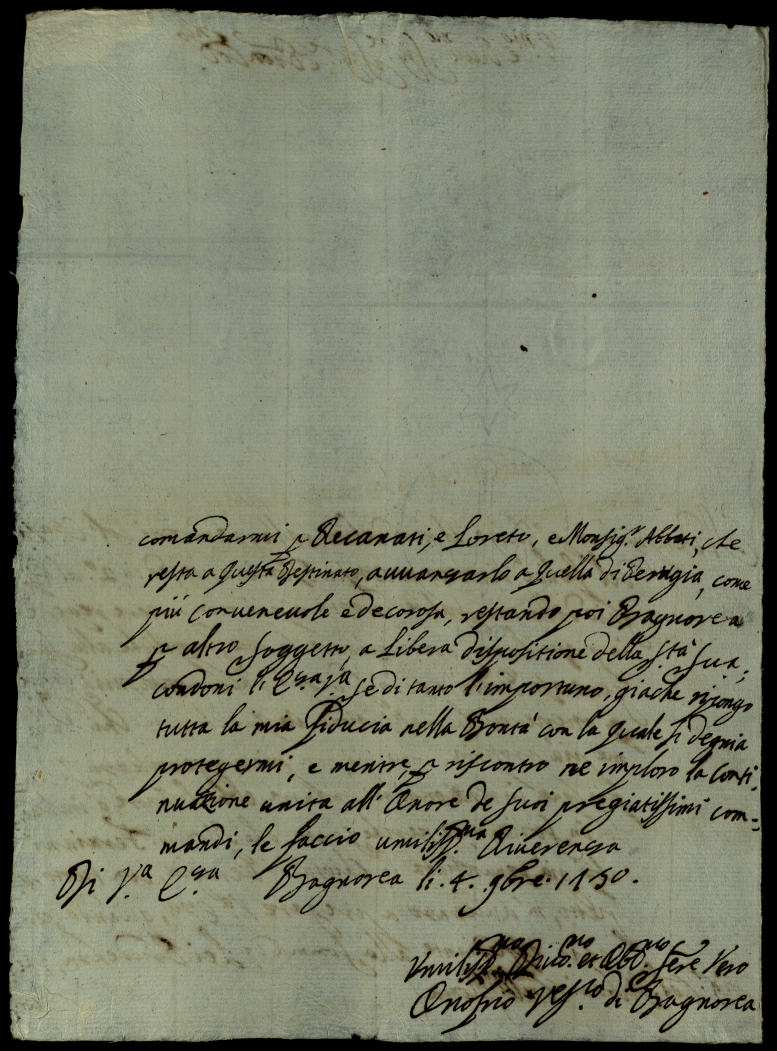 comandarmi p Recanati, e Loreto, e Monsig.r Abbati, che
resta a questa destinato, avvanzarlo a quella di Perugia, come
più convenevole e decorosa, restando poi Bagnorea
p altro soggetto, a libera dispositione della S.tà Sua,
condoni l'E. V.a se di tanto l'importuno, giachè ripongo
tutta la mia fiducia nella Bontà con la quale si degnia
protegermi, e mentre, p riscontro ne imploro la conti-
nuatione unita all'Onore de suoi pregiatissimi com-
mandi, le faccio umiliss.ma Riverenza
Di V.a E.za Bagnorea li. 4. 9bre. 1750.
Umiliss.mo Div.mo et Obb.mo Ser.e Vero
Onofrio Vesc.o di Bagnorea